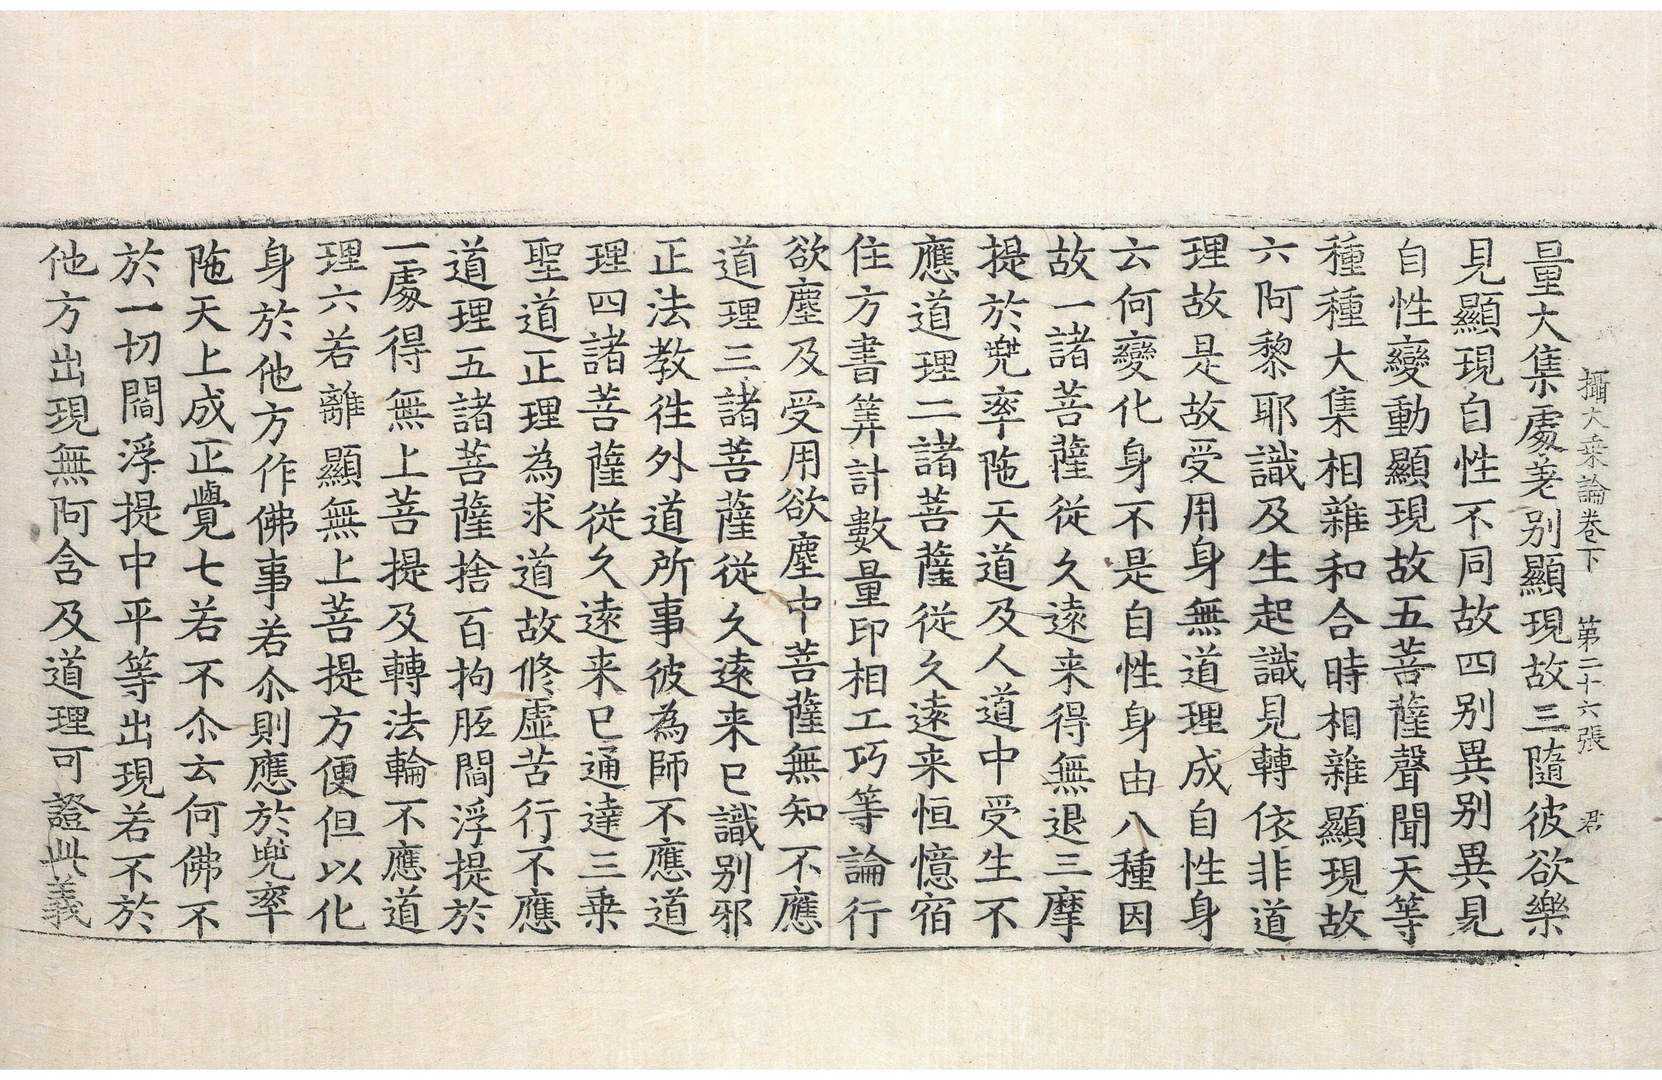 攝大乗論卷下 第二十六張 君
量大集處差别顯現故三隨彼欲樂
見顯現自性不同故四别異别異見
自性變動顯現故五菩薩聲聞天等
種種大集相雜和合時相雜顯現故
六阿黎耶識及生起識見轉依非道
理故是故受用身無道理成自性身
云何變化身不是自性身由八種因
故一諸菩薩從久遠来得無退三摩
提於兠率陁天道及人道中受生不
應道理二諸菩薩從久遠来恒憶宿
住方書筭計數量印相工巧等論行
欲塵及受用欲塵中菩薩無知不應
道理三諸菩薩從久遠来已識别邪
正法教徃外道所事彼為師不應道
理四諸菩薩從久遠来已通達三乗
聖道正理為求道故修虚苦行不應
道理五諸菩薩捨百拘胝閻浮提於
一處得無上菩提及轉法輪不應道
理六若離顯無上菩提方便但以化
身於他方作佛事若尒則應於兠率
陁天上成正覺七若不尒云何佛不
於一切閻浮提中平等出現若不於
他方出現無阿含及道理可證此義